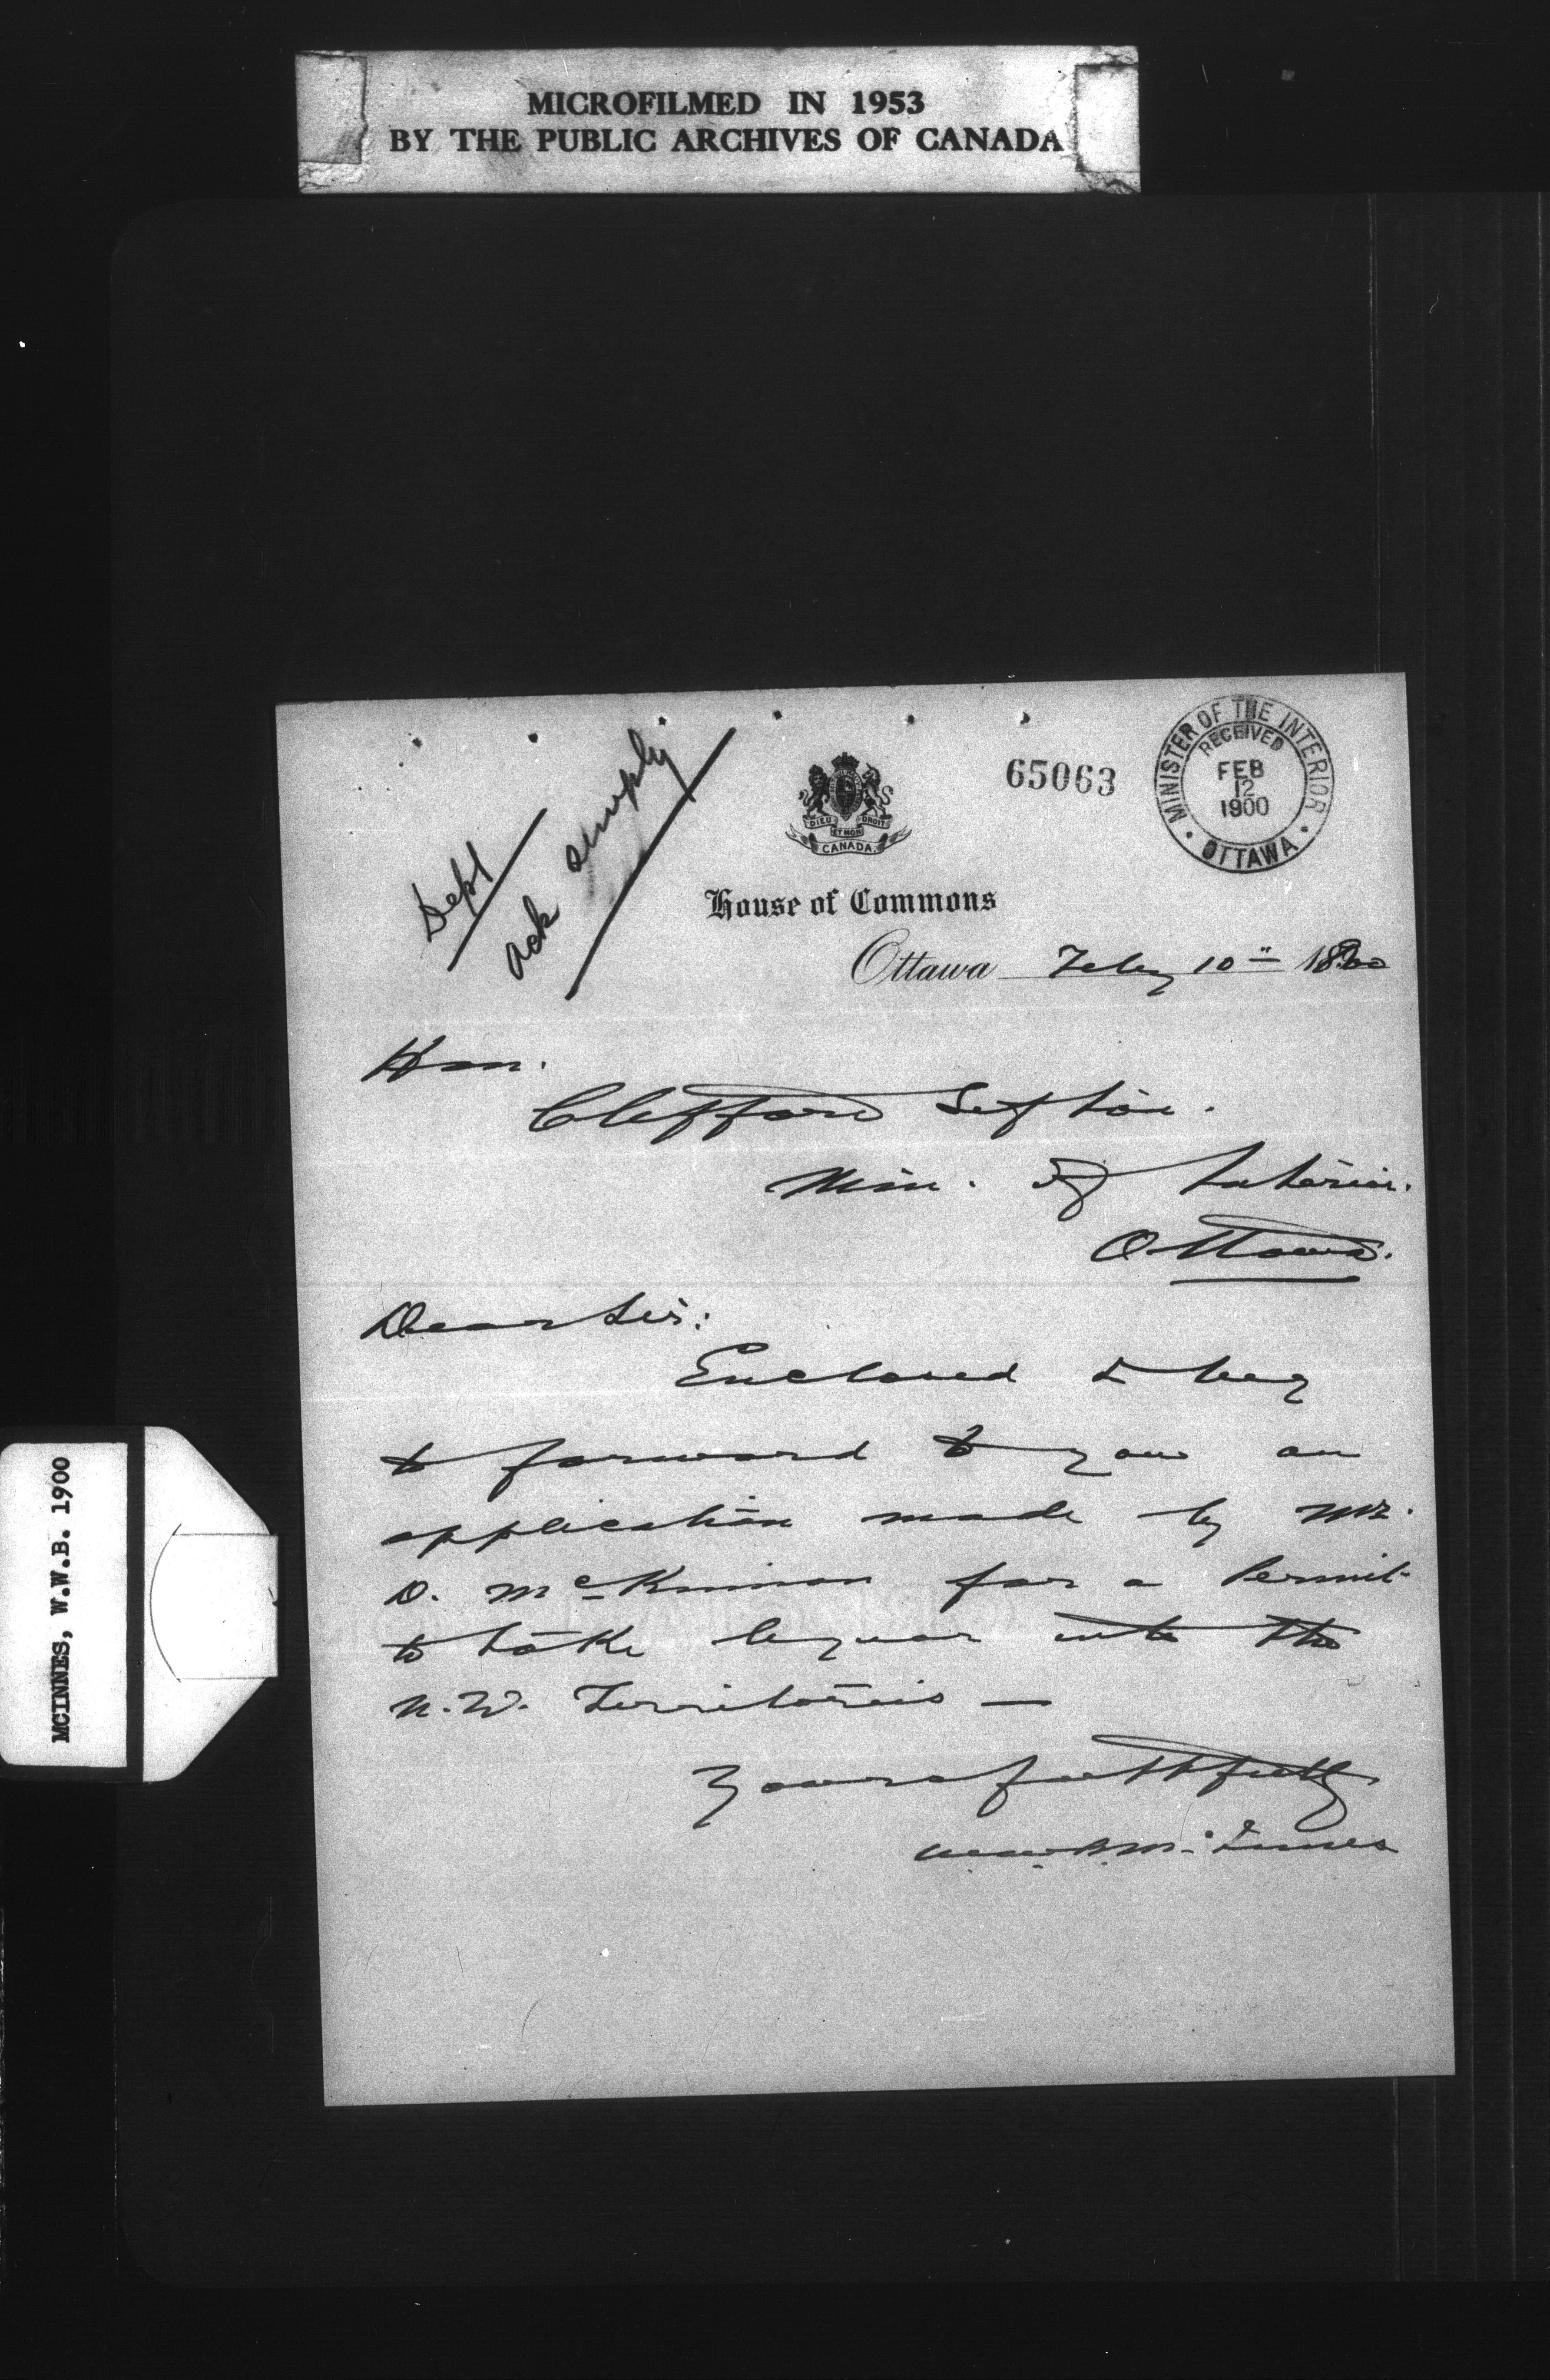 MICROFILMED IN 1953
BY THE PUBLIC ARCHIVES OF CANADA
Dept
ack simply
DIEU ET MON DROIT
CANADA.
65063
MINISTER OF THE INTERIOR
RECEIVED
FEB
12
1900
OTTAWA
House of Commons
Ottawa Feby 10th 1900
Hon.
Clifford Sifton.
Min. of Interior.
Ottawa.
Dear Sir:
Enclosed I beg
to forward to you an
application made by Mr.
D. McKinnon for a Permit
to take liquor into the
N.W. Territories —
Yours faithfully
W.W.B. McInnes
MCINNES, W.W.B. 1900